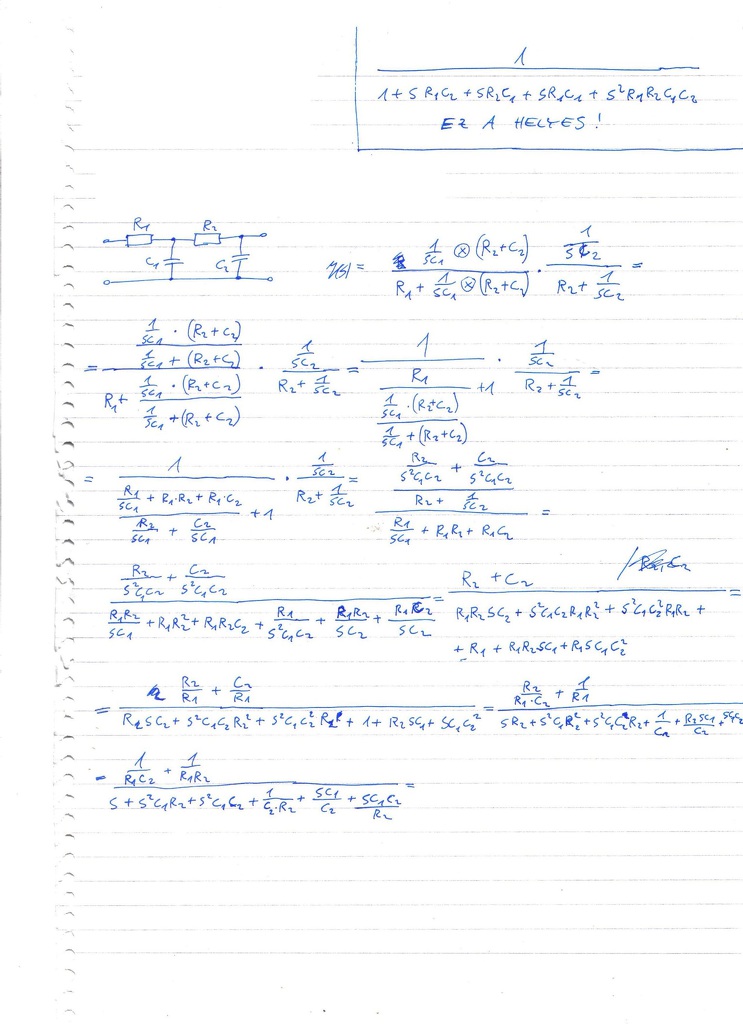 1
1 + S R1C2 + SR2C1 + SR1C1 + S²R1R2C1C2
EZ A HELYES!
R1 R2
C1 C2
1/SC1 ⊗ (R2+C2) / R1 + 1/SC1 ⊗ (R2+C2) · 1/SC2 / R2 + 1/SC2 =
= 1/SC1 · (R2+C2) / 1/SC1 + (R2+C2) / R1 + 1/SC1 · (R2+C2) / 1/SC1 + (R2+C2) · 1/SC2 / R2 + 1/SC2 = 1 / R1 / 1/SC1 · (R2+C2) / 1/SC1 + (R2+C2) + 1 · 1/SC2 / R2 + 1/SC2 =
= 1 / R1/SC1 + R1·R2 + R1·C2 / R2/SC1 + C2/SC1 + 1 · 1/SC2 / R2 + 1/SC2 = R2/S²C1C2 + C2/S²C1C2 / R2 + 1/SC2 / R1/SC1 + R1R2 + R1C2 =
R2/S²C1C2 + C2/S²C1C2 / R1R2/SC1 + R1R2² + R1R2C2 + R1/S²C1C2 + R1R2/SC2 + R1C2/SC2 = R2 + C2 / R1R2SC2 + S²C1C2R1R2² + S²C1C2²R1R2 + + R1 + R1R2SC1 + R1SC1C2² =
= R2/R1 + C2/R1 / R2SC2 + S²C1C2R2² + S²C1C2²R2 + 1 + R2SC1 + SC1C2² = R2/R1·C2 + 1/R1 / SR2 + S²C1R2² + S²C1C2R2 + 1/C2 + R2SC1/C2 + SC1C2
= 1/R1C2 + 1/R1R2 / S + S²C1R2 + S²C1C2 + 1/C2·R2 + SC1/C2 + SC1C2/R2 =